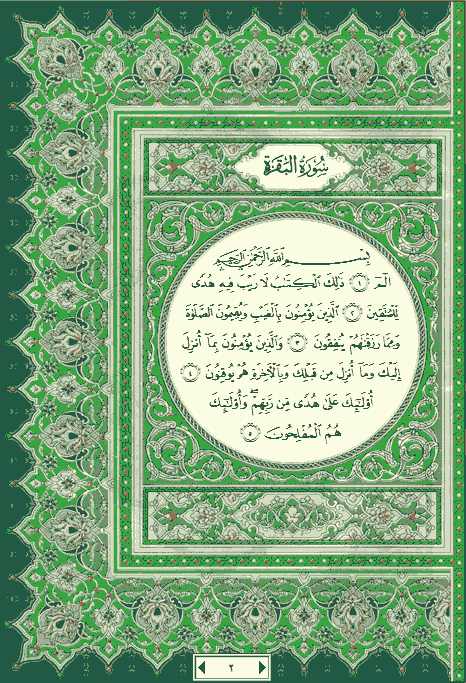 سُورَةُ البَقَرَةِ
بِسْمِ اللَّهِ الرَّحْمَٰنِ الرَّحِيمِ
الٓمٓ ١ ذَٰلِكَ الْكِتَٰبُ لَا رَيْبَ فِيهِ هُدًى
لِّلْمُتَّقِينَ ٢ الَّذِينَ يُؤْمِنُونَ بِالْغَيْبِ وَيُقِيمُونَ الصَّلَوٰةَ
وَمِمَّا رَزَقْنَٰهُمْ يُنفِقُونَ ٣ وَالَّذِينَ يُؤْمِنُونَ بِمَآ أُنزِلَ
إِلَيْكَ وَمَآ أُنزِلَ مِن قَبْلِكَ وَبِالْآخِرَةِ هُمْ يُوقِنُونَ ٤
أُوْلَٰٓئِكَ عَلَىٰ هُدًى مِّن رَّبِّهِمْ ۖ وَأُوْلَٰٓئِكَ
هُمُ الْمُفْلِحُونَ ٥
٢